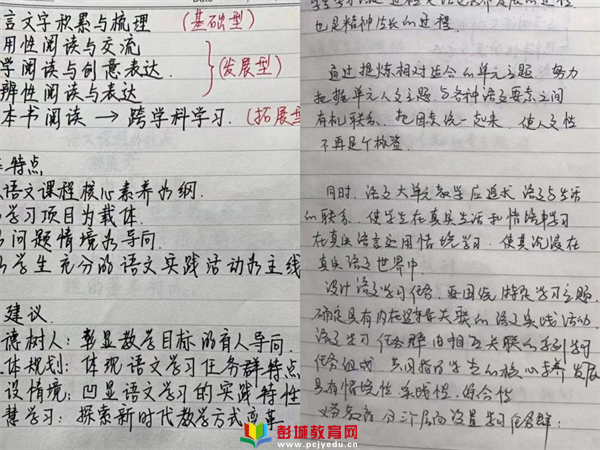 言文字积累与梳理 (基础型)
用性阅读与交流
学阅读与创意表达. (发展型)
辨性阅读与表达
本书阅读 → 跨学科学习. (拓展型
特点
语文课程核心素养为纲.
学习项目为载体.
问题情境为导向.
学生充分的语文实践活动为主线
建议.
德树人: 彰显教学目标的育人导向.
体规划: 体现语文学习任务群特点
设情境: 凹显语文学习的实践特性
慧学习: 探索新时代教学方式变革
也是精神成长的过程.
通过提炼相对适合的单元主题, 努力
把握单元人文主题与各种语文要素之间
有机联系, 把目标统一起来, 使人文性
不再是个标签.
同时, 语文大单元教学应追求语文与生活
的联系, 使学生在真实生活和情境中学习
在真实语言运用情境学习, 使其沉浸在
真实语文世界中.
设计语文学习任务, 要围绕特定学习主题,
确定具有内在逻辑关联的语文实践活动.
语文学习任务群由相互关联的系列学习
任务组成, 共同指向学生的核心素养发展
具有情境性、实践性、综合性
义务教育分三个层面设置学习任务群:
彭城教育网
www.pcjyedu.cn